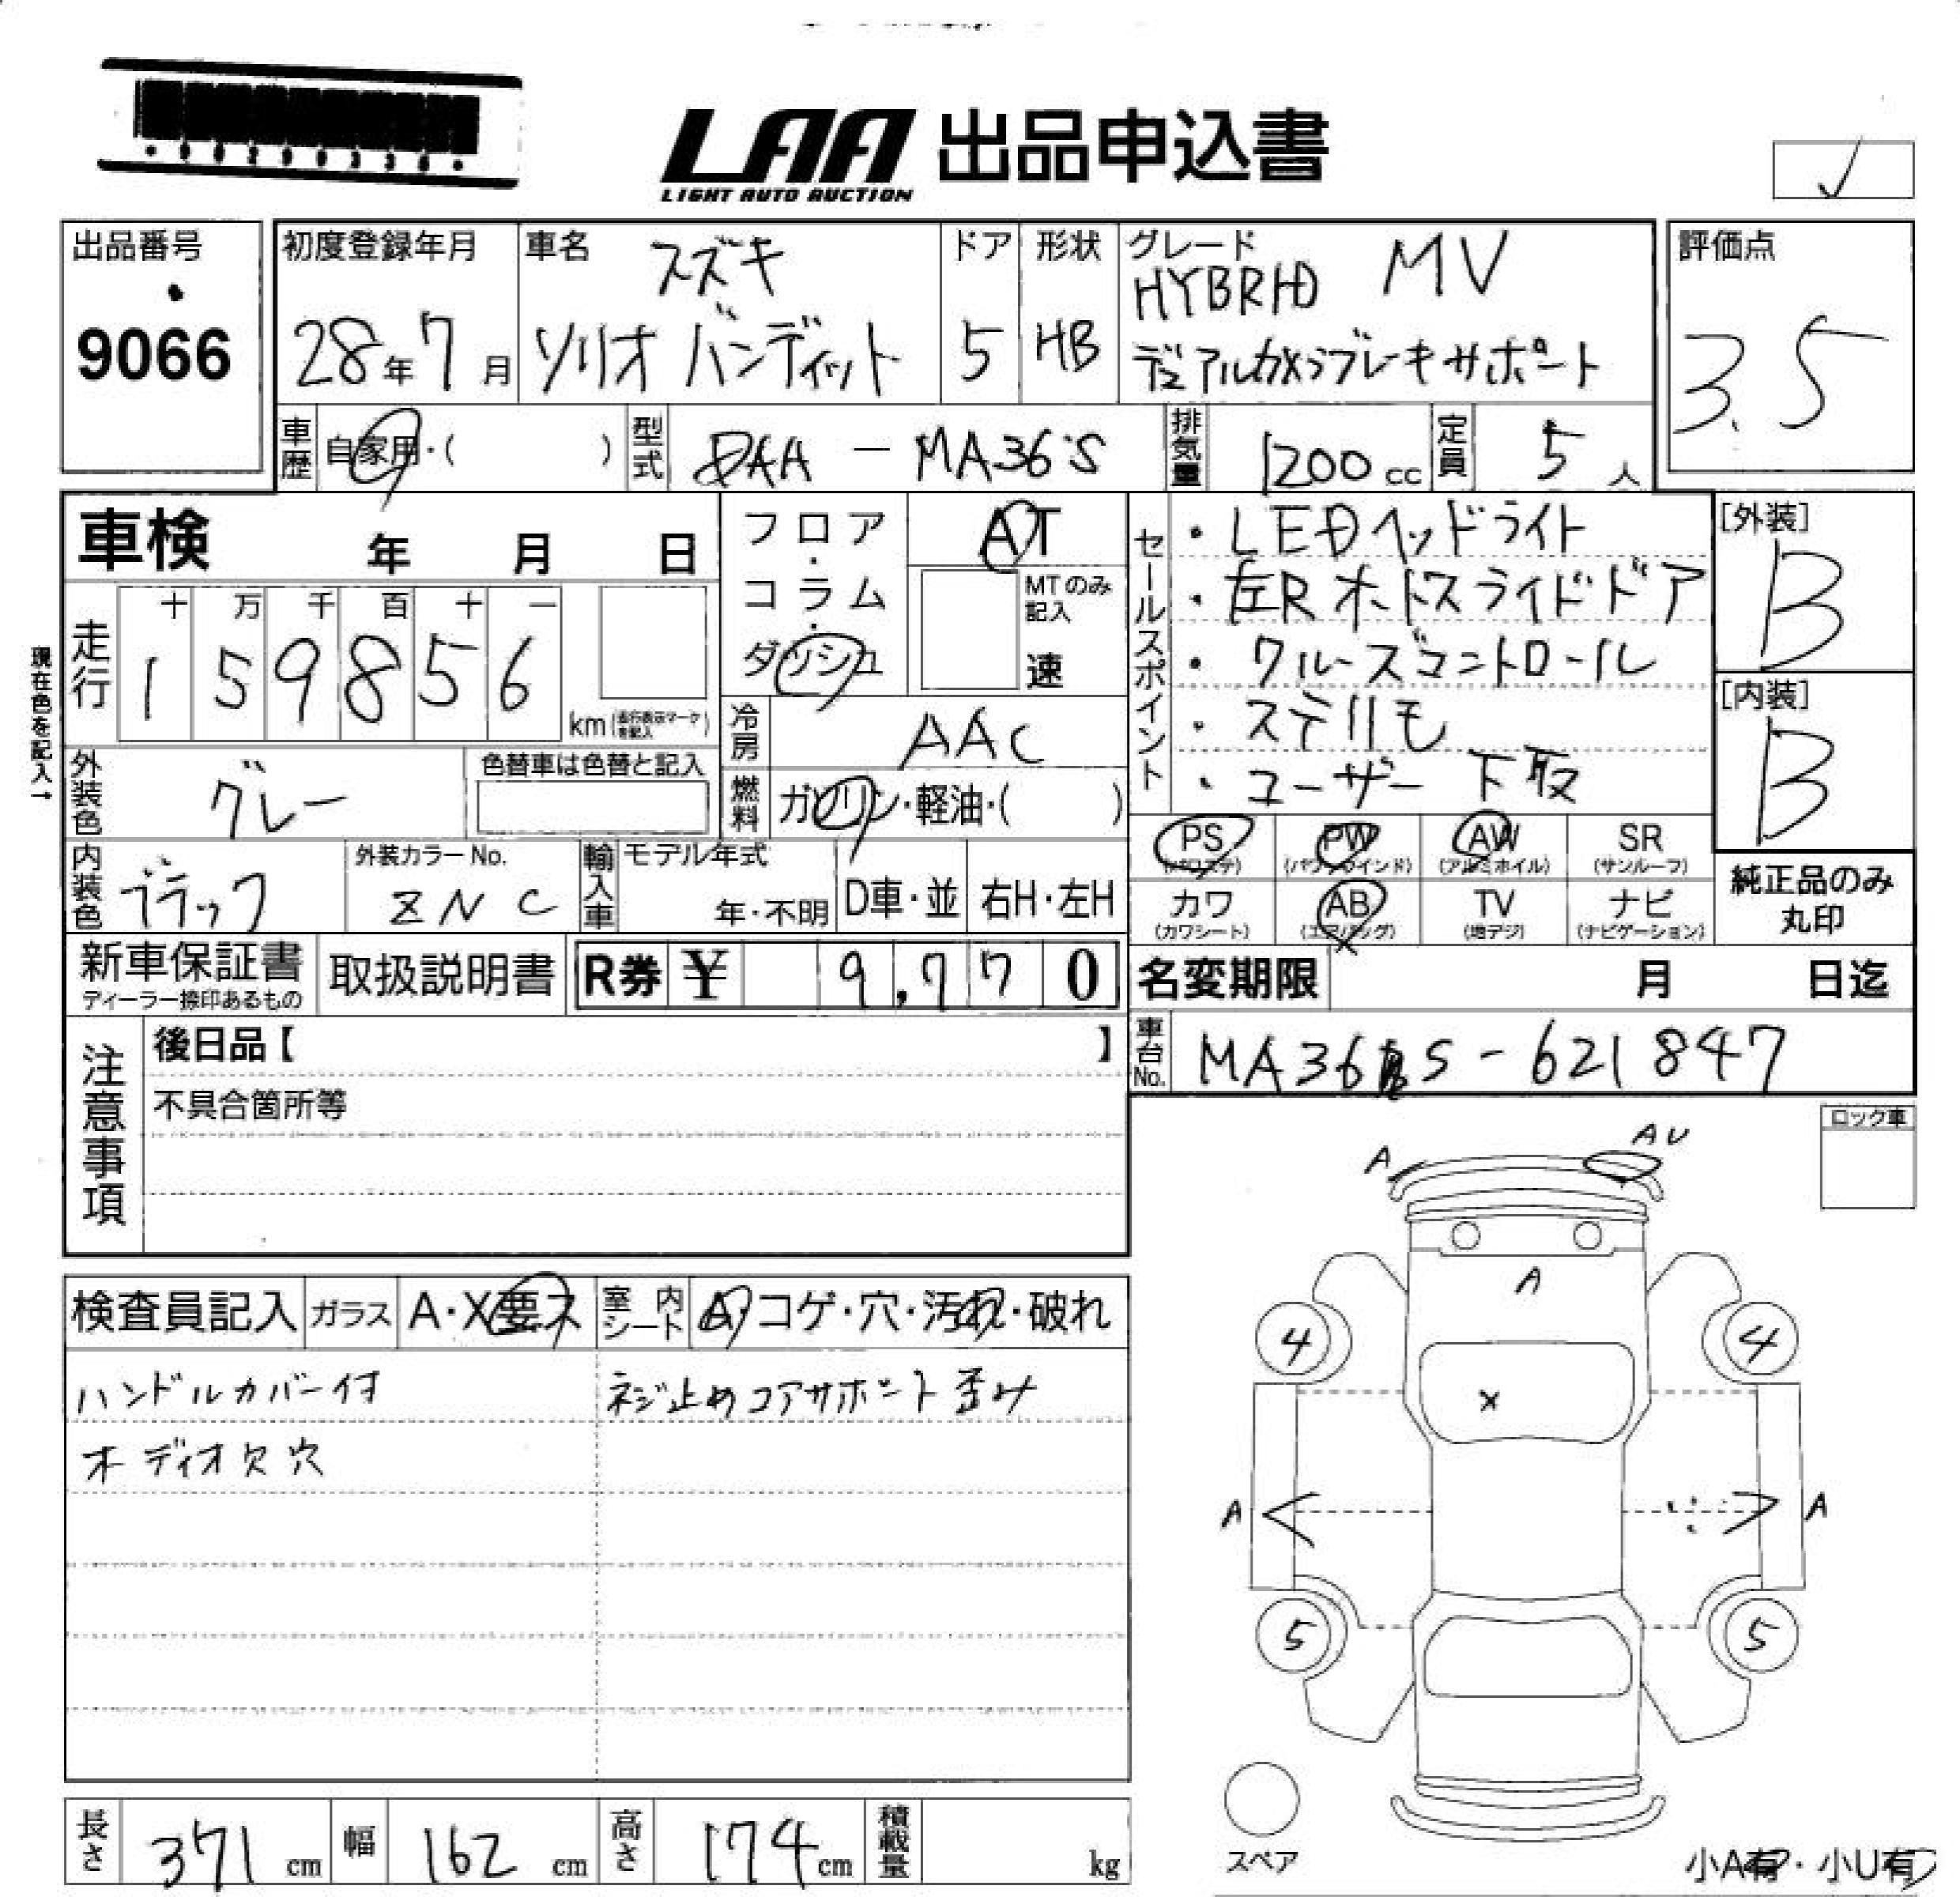 LAA 出品申込書
LIGHT AUTO AUCTION
出品番号
9066
初度登録年月
28年7月
車名
スズキ
ソリオ バンディット
ドア
5
形状
HB
グレード
HYBRID MV
デュアルカメラブレーキサポート
評価点
3.5
車歴 自家用・( )
型式 DAA - MA36S
排気量 1200cc
定員 5人
車検 年 月 日
フロア・コラム・ダッシュ
AT
MTのみ記入
速
セールスポイント
・LEDヘッドライト
・左Rオートスライドドア
・クルーズコントロール
・ステリモ
・ユーザー下取
[外装]
B
[内装]
B
現在色を記入→
走行
十 万 千 百 十 一
1 5 9 8 5 6
km(走行表示マークを記入)
冷房 AAC
外装色 グレー
色替車は色替と記入
燃料 ガソリン・軽油・( )
内装色 ブラック
外装カラーNo.
ZNC
輸入車
モデル年式
年・不明
D車・並
右H・左H
PS (パワステ)
PW (パワーウインド)
AW (アルミホイル)
SR (サンルーフ)
カワ (カワシート)
AB (エアバッグ)
TV (地デジ)
ナビ (ナビゲーション)
純正品のみ
丸印
新車保証書
ディーラー捺印あるもの
取扱説明書
R券 ¥ 9,770
名変期限 月 日迄
注意事項
後日品【 】
不具合箇所等
車台No. MA36S-621847
ロック車
検査員記入
ガラス A・X要ス
室内シート A・コゲ・穴・汚れ・破れ
ハンドルカバー付
オーディオ欠穴
ネジ止めコアサポート歪み
A
AU
A
4
4
X
A
A
5
5
スペア
小A有・小U有
長さ 371cm
幅 162cm
高さ 174cm
積載量 kg